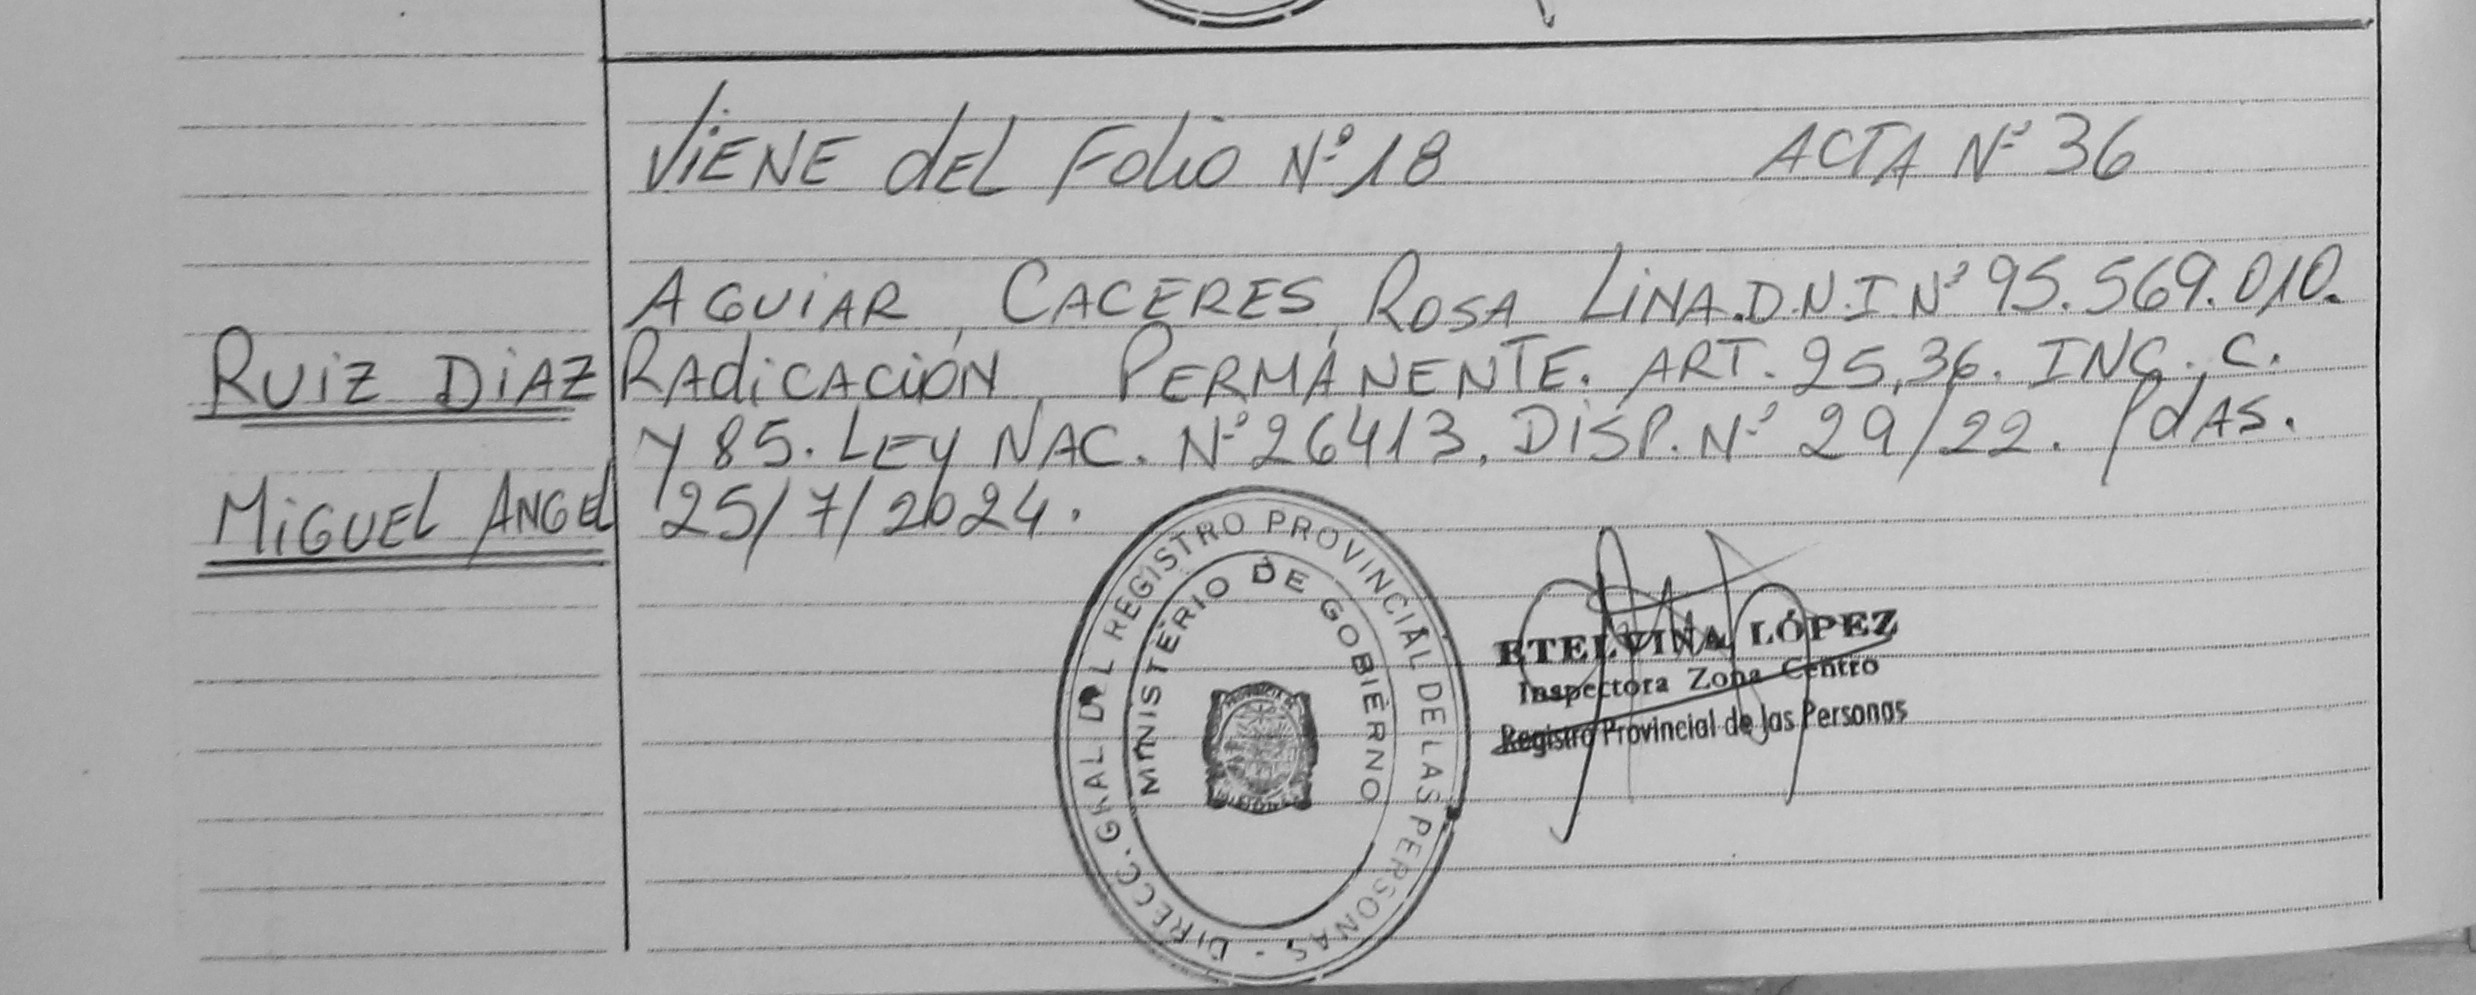 VIENE DEL FOLIO Nº 18 ACTA Nº 36
AGUIAR, CACERES, ROSA LINA. D.N.I Nº 95.569.010.
RUIZ DIAZ
RADICACIÓN PERMANENTE. ART. 25, 36. INC. C.
Y 85. LEY NAC. Nº 26413. DISP. Nº 29/22. PdAS.
MIGUEL ANGEL
25/7/2024.
DIRECC. GRAL DEL REGISTRO PROVINCIAL DE LAS PERSONAS -
MINISTERIO DE GOBIERNO
ETELVINA LÓPEZ
Inspectora Zona Centro
Registro Provincial de las Personas